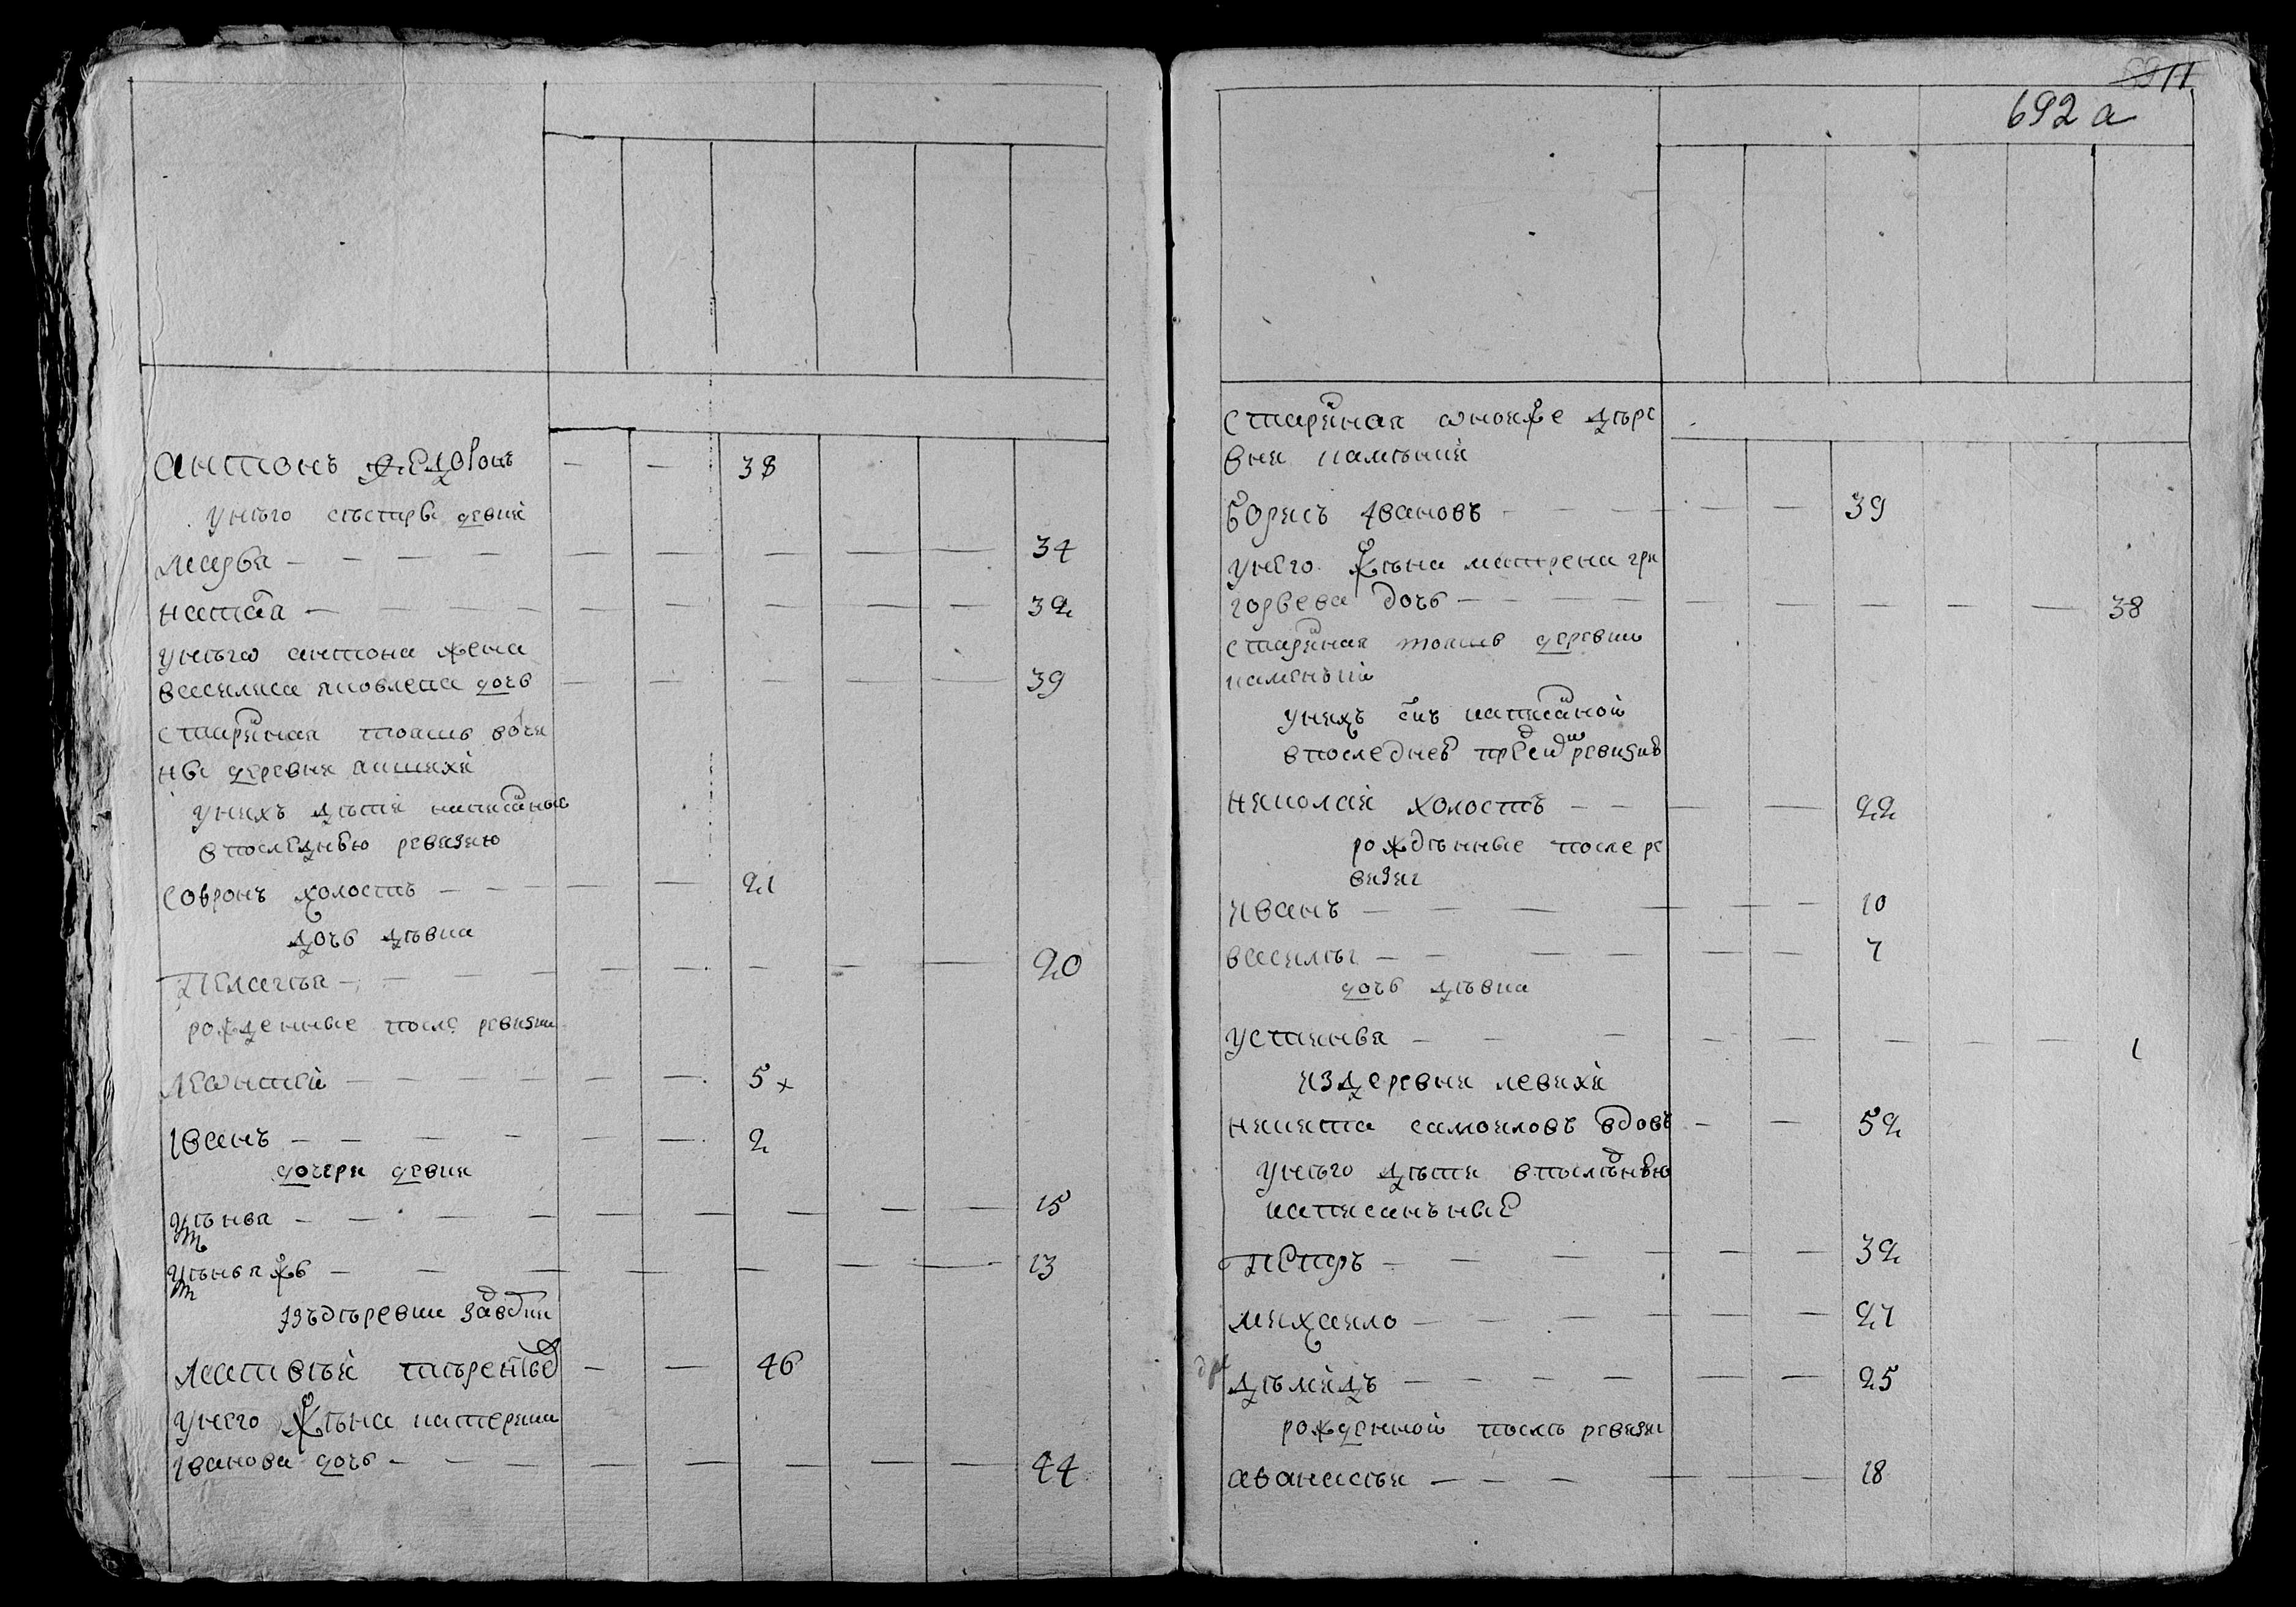 антонъ ѳедоровъ — — 38
унѣго сѣстры девки
марѳа — — — 34
ната — — — 32
унѣго антона жена
василиса яковлева дочь — — — 39
старинная тояжъ вочи
ны деревни
унихъ дѣти написаныя
впоследнюю ревизию
соѳронъ холостъ — — — 21
дочь дѣвка
пелагѣа — — — 20
рожденныя после ревизии
леонтей — — — 5
Iванъ — — — 2
дочери девки
— — — 15
— — — 13
изъ дѣревни
матвѣй тѣрентьев — — 46
унего жѣна катерина
Iванова дочь — — — 44
692 а
старинная оноиже дѣре
вни
борисъ Iвановъ — — — 39
унего жѣна матрена гри
горьева дочь — — — 38
старинная тояжъ деревни
унихъ снъ написаной
впоследней пред сим ревизии
николай холостъ — — — 22
рождѣнные после ре
визии
иванъ — — — 10
василѣи — — — 7
дочь дѣвка
устинья — — — 1
из деревни левихи
никита самоиловъ вдовъ — — 52
унѣго дѣти впослѣднью
написанъные
петръ — — — 32
михаило — — — 27
дѣмидъ — — — 25
рожденной послѣ ревизии
аѳанасѣи — — — 18